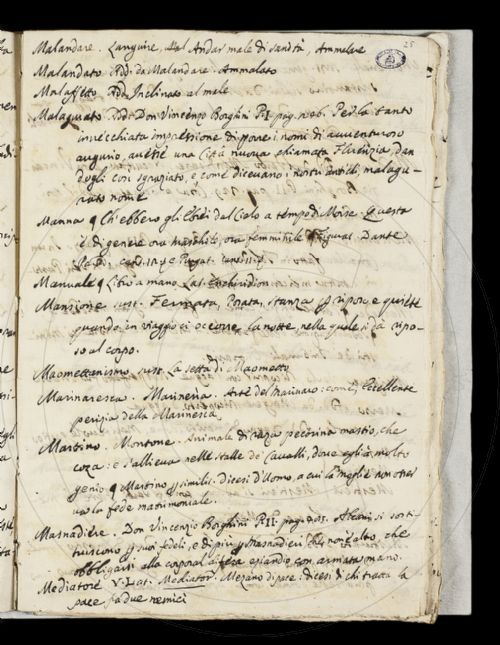 25
Malandare. Languire, dal Andar male di sanità, Ammalare
Malandato. Add. da Malandare. Ammalato
Malaffetto. Add. Inclinato al male
Malagurato. Add. Don Vincenzo Borghini P.I. pag. Per la tanto
invecchiata impressione di porre i nomi di avventuroso
augurio, avesse una Città nuova chiamata Fluenzia, dan
dogli così sgraziato, e come dicevano i nostri antichi, malagu-
rato nome
Manna Ch'ebbero gli Ebrei dal Cielo a tempo di Mosè. Questa
è di genere ora maschile, ora femminile. Dante
Manuale Libro a mano Lat. Enchiridion
Mansione sust. Fermata, Posata, stanza riposo e quiete
quando in viaggio si occorre la notte, nella quale si dà ripo-
so al corpo.
Maomettanismo. sust. La setta di Maometto
Marinaresca. Marineria. Arte del marinaro: come, Eccellente
perizia della Marinesca
Martino. Montone. Animale di razza pecorina mastio, che
cozza: e s'allieva nelle stalle de' Cavalli, dove egli à molto
genio Martino simili. Dicesi d'Uomo, a cui la moglie non osser
va la fede matrimoniale.
Masnadiere. Don Vincenzio Borghini P.II. pag. Alcuni si costi
tuiscono suoi fedeli, e di più Masnadieri nome alto, che
obbligarsi alla corporal difesa eziandio con armata mano.
Mediatore V. Lat. Mediator. Mezano di pace: dicesi di chi tratta la
pace fra due nemici